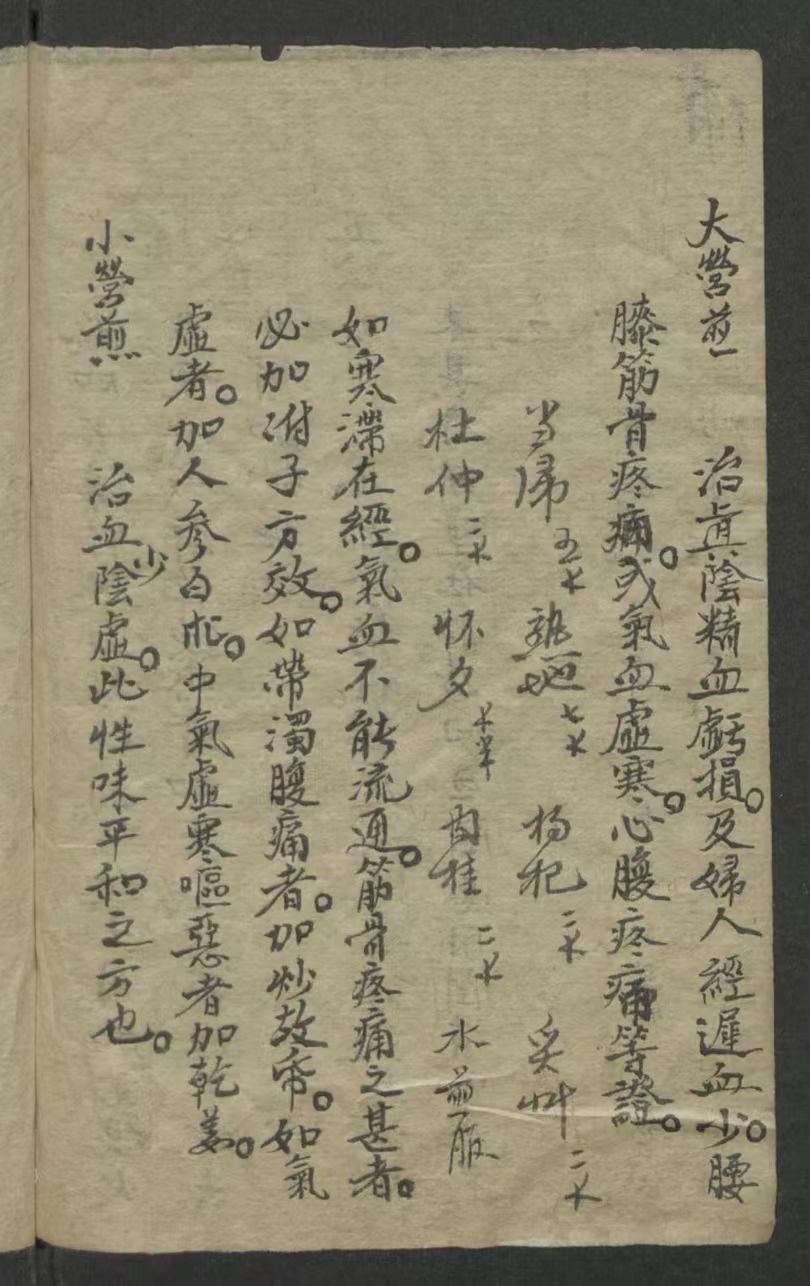 大營煎　治真陰精血虧損。及婦人經遲血少。腰
膝筋骨疼痛。或氣血虛寒。心腹疼痛等證。
当归五𠂆　熟地七𠂆　枸杞二𠂆　炙艸二𠂆
杜仲二𠂆　怀夕𠂆半　肉桂二𠂆　水煎服
如寒滯在經。氣血不能流通。筋骨疼痛之甚者。
必加附子方效。如帶濁腹痛者。加炒故帋。如氣
虛者。加人參白朮。中氣虛寒嘔惡者加乾姜。
小營煎　治血少陰虛。此性味平和之方也。